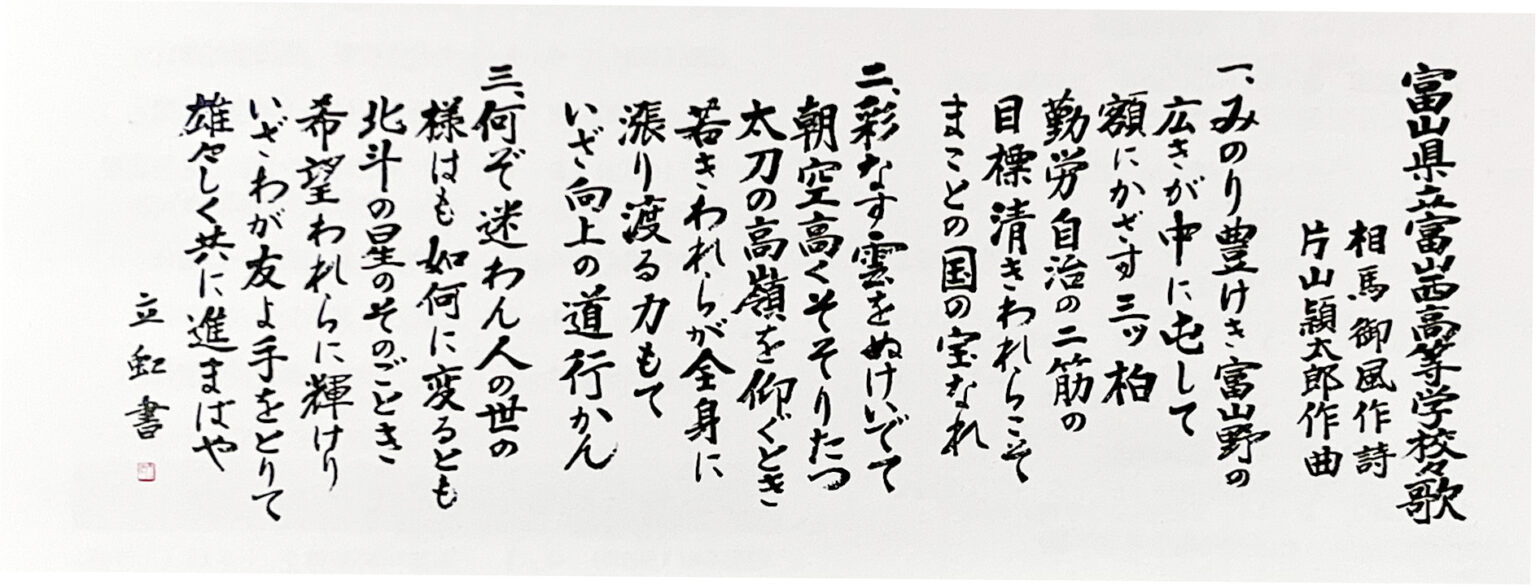 富山県立富山西高等学校々歌
相馬御風作詩
片山頴太郎作曲
一、みのり豊けき富山野の
広きが中に屯して
額にかざす三ッ柏
勤労自治の二筋の
目標清きわれらこそ
まことの国の宝なれ
二、彩なす雲をぬけいでて
朝空高くそそりたつ
太刀の高嶺を仰ぐとき
若きわれらが全身に
漲り渡る力もて
いざ向上の道行かん
三、何ぞ迷わん人の世の
様はも如何に変るとも
北斗の星のそのごとき
希望われらに輝けり
いざわが友よ手をとりて
雄々しく共に進まばや
立虹書